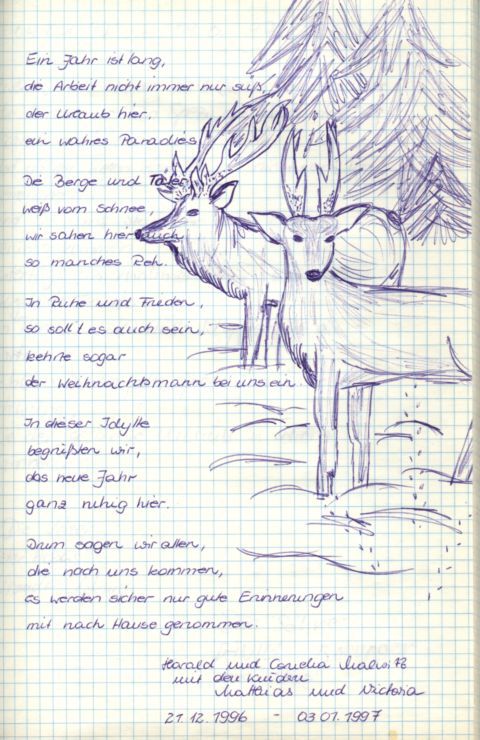 Ein Jahr ist lang,
die Arbeit nicht immer nur süß,
der Urlaub hier,
ein wahres Paradies.
Die Berge und Täler
weiß vom Schnee,
wir sahen hier auch
so manches Reh.
In Ruhe und Frieden,
so sollt es auch sein,
kehrte sogar
der Weihnachtsmann bei uns ein
In dieser Idylle
begrüßten wir,
das neue Jahr
ganz ruhig hier.
Drum sagen wir allen,
die nach uns kommen,
es werden sicher nur gute Erinnerungen
mit nach Hause genommen.
Harald und Cornelia
mit den Kindern
Matthias und Victoria
21.12.1996 - 03.01.1997